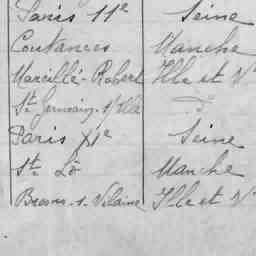 Paris 11e Seine
Coutances Manche
Marcillé-Robert Ille et V
St Germain-s/Ille d°
Paris XIe Seine
St Lô Manche
Brains-s-Vilaine Ille et V